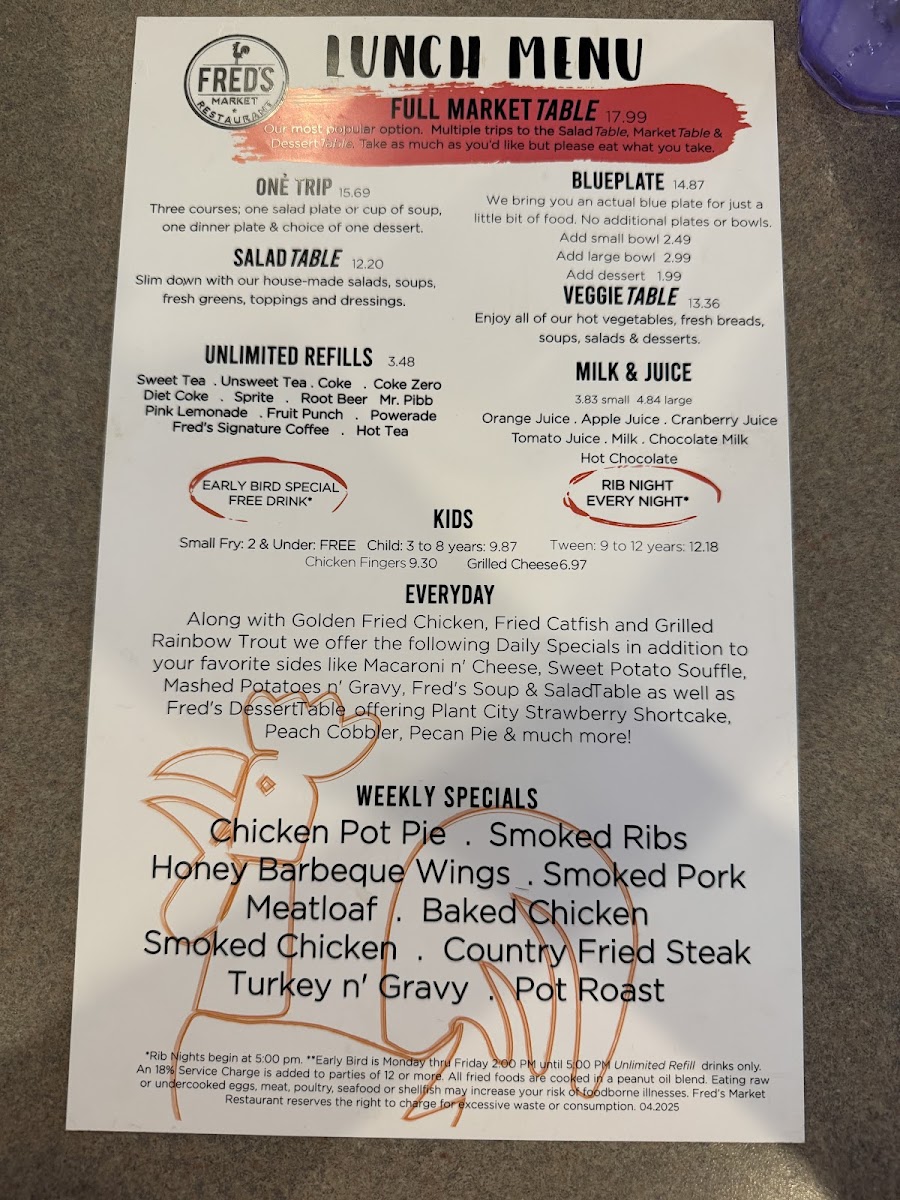 FRED'S
MARKET
RESTAURANT
LUNCH MENU
FULL MARKET TABLE 17.99
Our most popular option. Multiple trips to the Salad Table, Market Table &
Dessert Table. Take as much as you'd like but please eat what you take.
ONE TRIP 15.69
Three courses; one salad plate or cup of soup,
one dinner plate & choice of one dessert.
SALAD TABLE 12.20
Slim down with our house-made salads, soups,
fresh greens, toppings and dressings.
BLUEPLATE 14.87
We bring you an actual blue plate for just a
little bit of food. No additional plates or bowls.
Add small bowl 2.49
Add large bowl 2.99
Add dessert 1.99
VEGGIE TABLE 13.36
Enjoy all of our hot vegetables, fresh breads,
soups, salads & desserts.
UNLIMITED REFILLS 3.48
Sweet Tea . Unsweet Tea . Coke . Coke Zero
Diet Coke . Sprite . Root Beer Mr. Pibb
Pink Lemonade . Fruit Punch . Powerade
Fred's Signature Coffee . Hot Tea
MILK & JUICE
3.83 small 4.84 large
Orange Juice . Apple Juice . Cranberry Juice
Tomato Juice . Milk . Chocolate Milk
Hot Chocolate
EARLY BIRD SPECIAL
FREE DRINK*
RIB NIGHT
EVERY NIGHT*
KIDS
Small Fry: 2 & Under: FREE Child: 3 to 8 years: 9.87 Tween: 9 to 12 years: 12.18
Chicken Fingers 9.30 Grilled Cheese6.97
EVERYDAY
Along with Golden Fried Chicken, Fried Catfish and Grilled
Rainbow Trout we offer the following Daily Specials in addition to
your favorite sides like Macaroni n' Cheese, Sweet Potato Souffle,
Mashed Potatoes n' Gravy, Fred's Soup & SaladTable as well as
Fred's DessertTable offering Plant City Strawberry Shortcake,
Peach Cobbler, Pecan Pie & much more!
WEEKLY SPECIALS
Chicken Pot Pie . Smoked Ribs
Honey Barbeque Wings . Smoked Pork
Meatloaf . Baked Chicken
Smoked Chicken . Country Fried Steak
Turkey n' Gravy . Pot Roast
*Rib Nights begin at 5:00 pm. **Early Bird is Monday thru Friday 2:00 PM until 5:00 PM Unlimited Refill drinks only.
An 18% Service Charge is added to parties of 12 or more. All fried foods are cooked in a peanut oil blend. Eating raw
or undercooked eggs, meat, poultry, seafood or shellfish may increase your risk of foodborne illnesses. Fred's Market
Restaurant reserves the right to charge for excessive waste or consumption. 04.2025